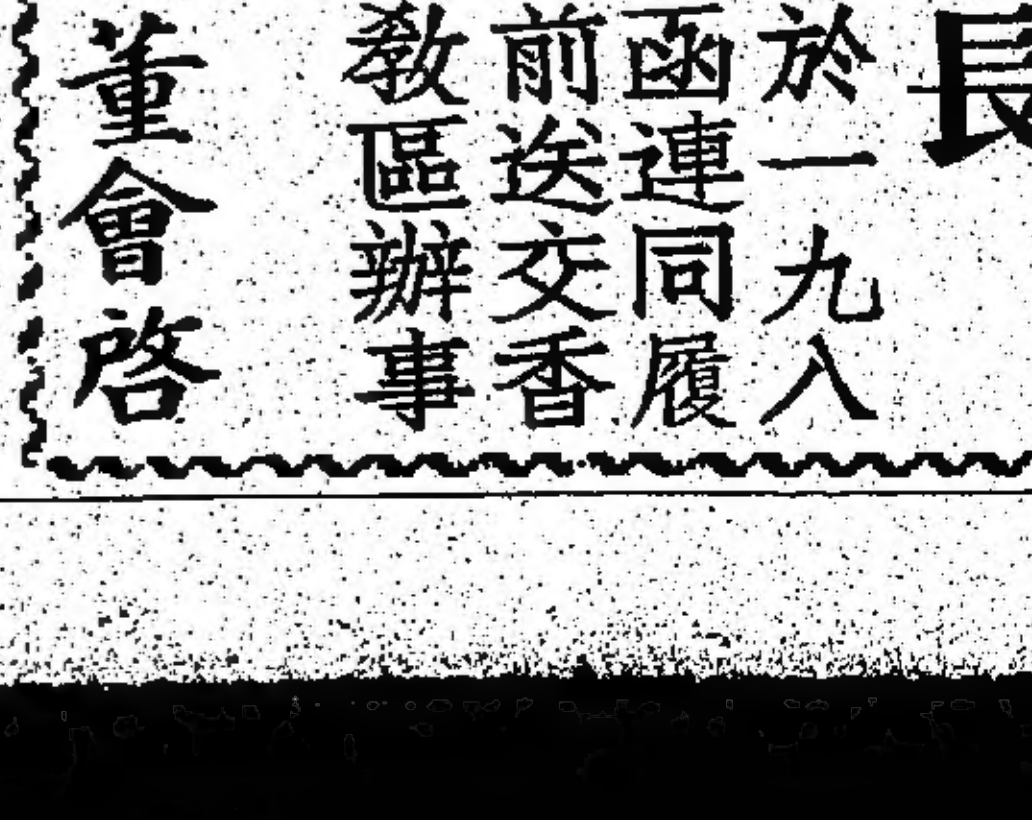 長
於一九八
函連同履
前送交香
教區辦事
董會啓